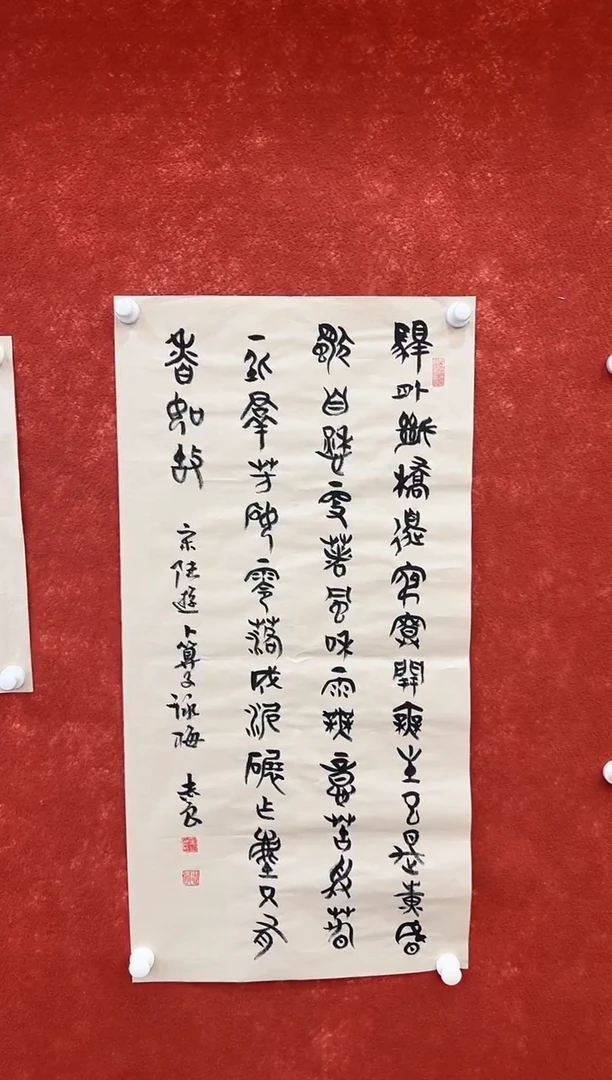 驛外斷橋邊寂寞開無主已是黃昏
獨自愁更著風和雨無意苦爭春
一任羣芳妒零落成泥碾作塵只有
香如故
宋陸遊卜算子詠梅